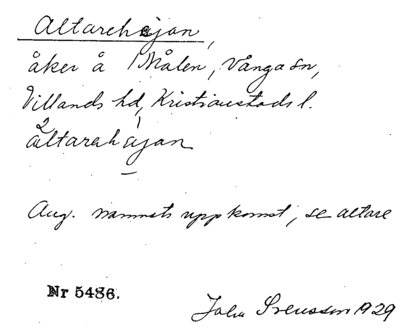 Altarehejan,
åker å Målen, Vånga sn,
Villands hd, Kristianstads l.
altarahajan
Ang. namnets uppkomst, se altare
Nr 5486.
John Svensson 1929